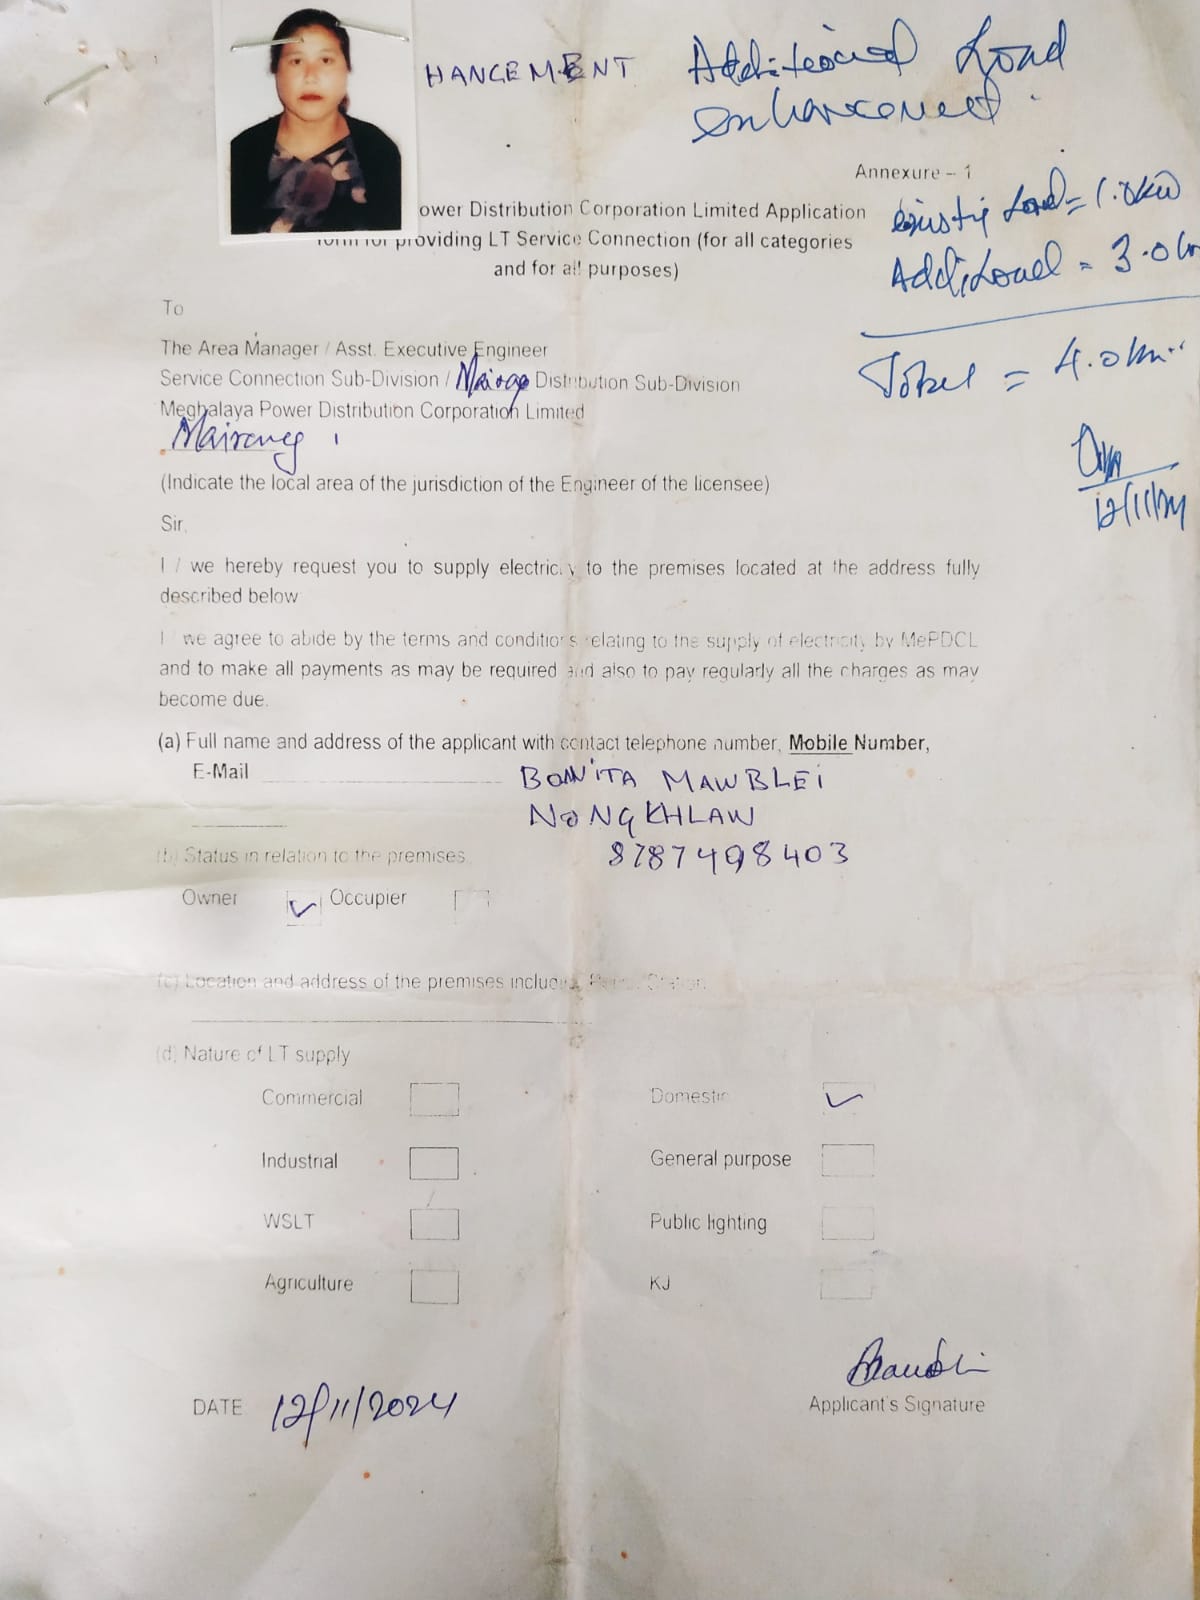 HANCEMENT
Additional Load
enhancement.
Annexure – 1
ower Distribution Corporation Limited Application
form for providing LT Service Connection (for all categories
and for all purposes)
Existing Load = 1.0kw
Addl, Load = 3.0
Total = 4.0 kw
12/11/24
To
The Area Manager / Asst. Executive Engineer
Service Connection Sub-Division / Mairang Distribution Sub-Division
Meghalaya Power Distribution Corporation Limited
Mairang
(Indicate the local area of the jurisdiction of the Engineer of the licensee)
Sir,
I / we hereby request you to supply electricity to the premises located at the address fully
described below
I / we agree to abide by the terms and conditions relating to the supply of electricity by MePDCL
and to make all payments as may be required and also to pay regularly all the charges as may
become due.
(a) Full name and address of the applicant with contact telephone number, Mobile Number,
E-Mail BONITA MAWBLEI
NONGKHLAW
(b) Status in relation to the premises 8787498403
Owner ✓ Occupier
(c) Location and address of the premises including Police Station
(d) Nature of LT supply
Commercial Domestic ✓
Industrial General purpose
WSLT Public lighting
Agriculture KJ
DATE 12/11/2024
Applicant's Signature